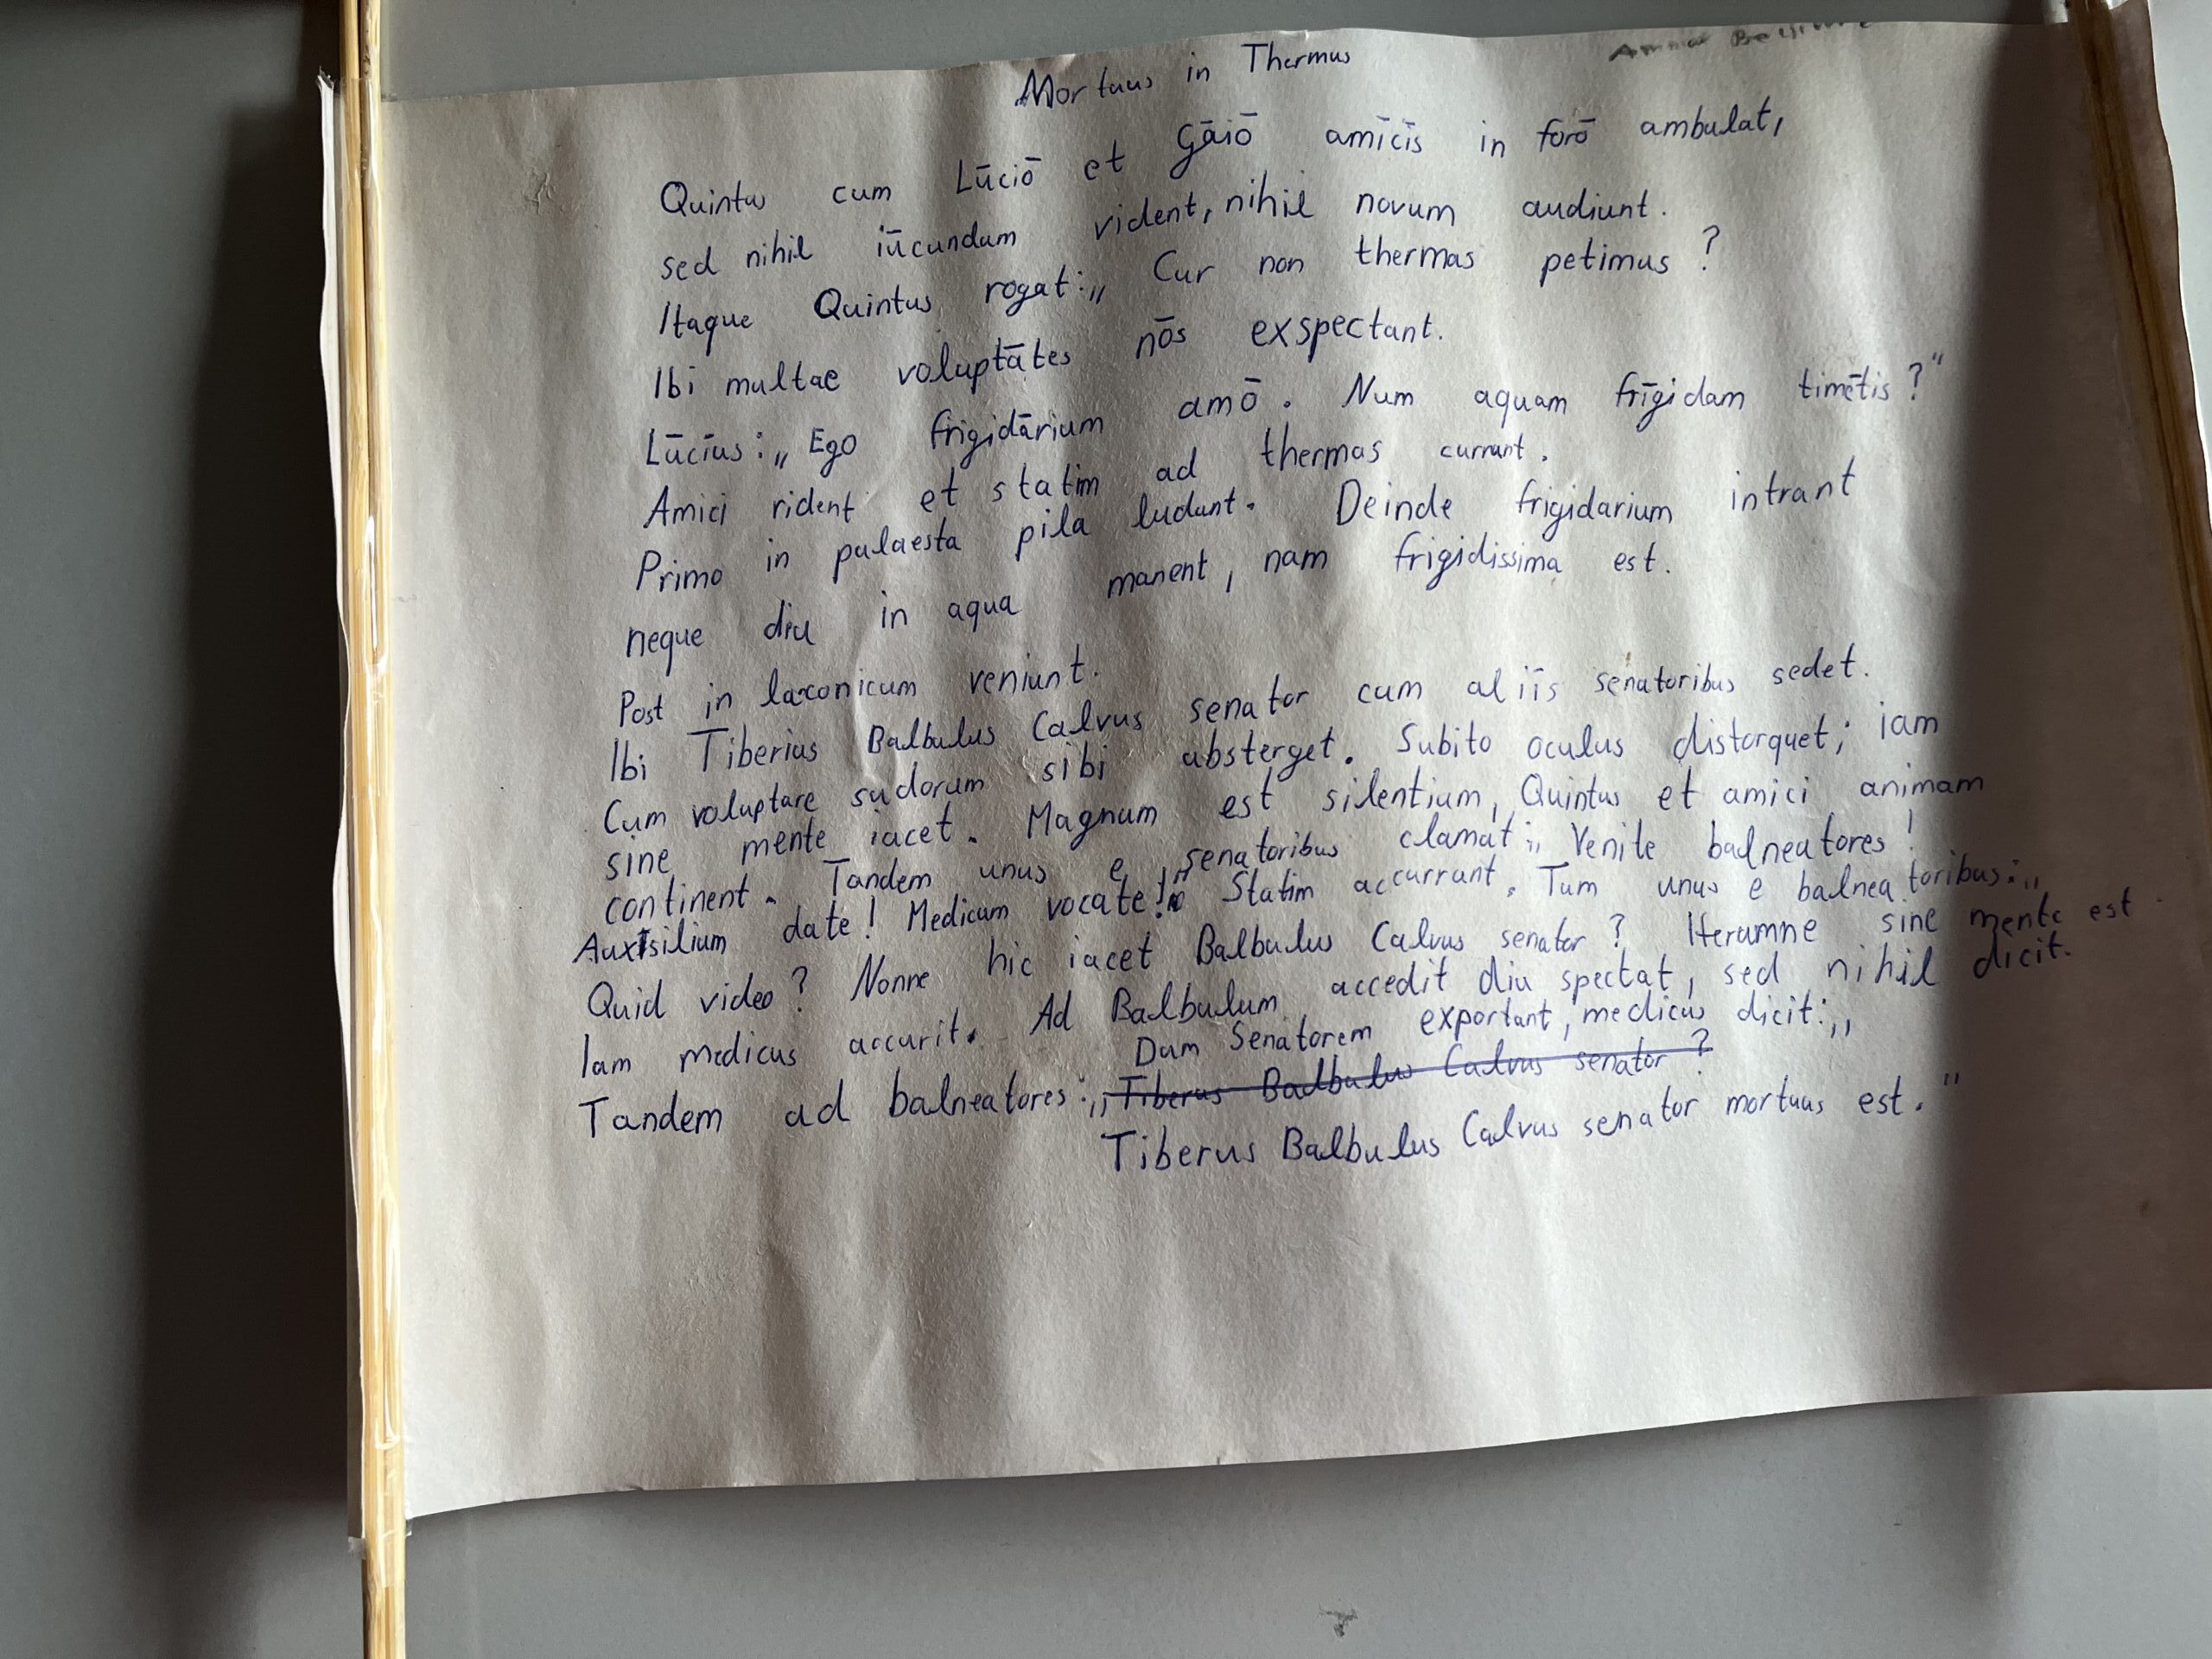 Mortuus in Thermus
Quintus cum Lūciō et Gāiō amīcīs in forō ambulat,
sed nihil iūcundum vident, nihil novum audiunt.
Itaque Quintus rogat:„ Cur non thermas petimus ?
Ibi multae voluptātes nōs exspectant.
Lūcīus:„ Ego frigidārium amō. Num aquam frīgidam timētis?"
Amici rident et statim ad thermas currunt.
Primo in palaesta pila ludunt. Deinde frigidarium intrant
neque diu in aqua manent, nam frigidissima est.
Post in laconicum veniunt.
Ibi Tiberius Balbulus Calvus senator cum aliīs senatoribus sedet.
Cum voluptare sudorum sibi absterget. Subito oculus distorquet; iam
sine mente iacet. Magnum est silentium, Quintus et amici animam
continent. Tandem unus e senatoribus clamat:„ Venite balneatores!
Auxsilium date! Medicum vocate!" Statim accurrant. Tum unus e balneatoribus:„
Quid video? Nonne hic iacet Balbulus Calvus senator? Iterumne sine mente est.
Iam medicus accurit. Ad Balbulum accedit diu spectat, sed nihil dicit.
Dum Senatorem exportant, medicus dicit:„
Tandem ad balneatores:„ Tiberus Balbulus Calvus senator ?
Tiberus Balbulus Calvus senator mortuus est."